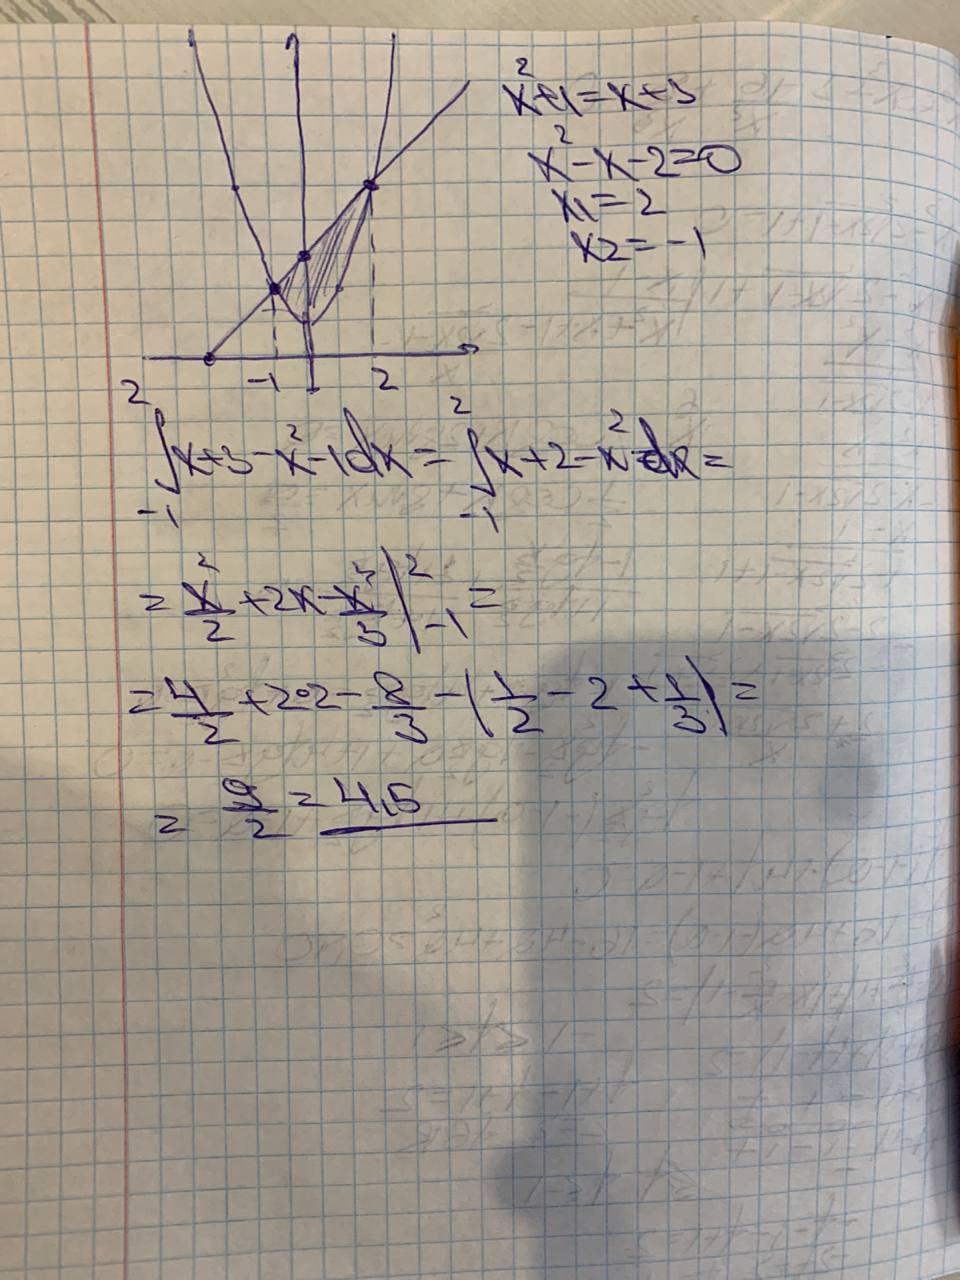 x²+1=x+3
x²-x-2=0
x1=2
x2=-1
-1 2
∫₋₁² x+3-x²-1dx = ∫₋₁² x+2-x²dx=
= x²/2 +2x- x³/3 |₋₁² =
= 4/2 +2·2 - 8/3 -(1/2 - 2 + 1/3)=
= 9/2 = 4,5